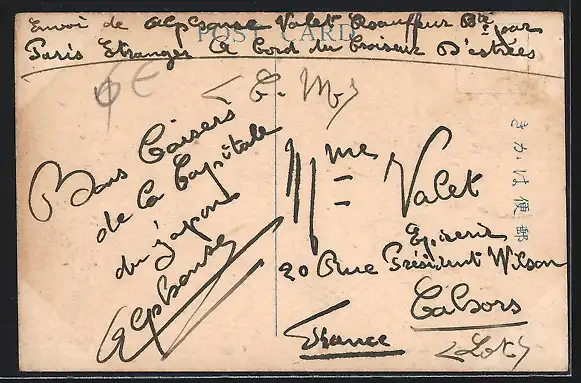 Envoi de Alphonse Valet Chauffeur Bté par
Paris Etranger A bord du Croiseur D'estrées
POST CARD
< C. M. >
Bons Baisers
de la Capitale
du Japon
Alphonse
Mme Valet
Epicerie
20 Rue Président Wilson
Cahors
France
<Lot>
きかは便郵